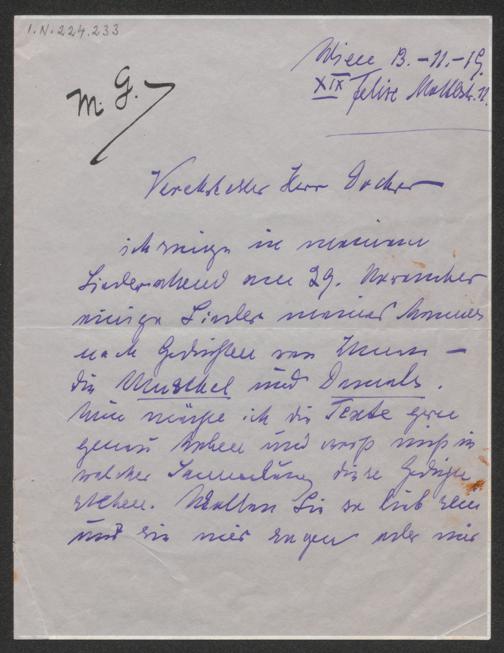 I.N. 224.233
Wien 13.-11.-19.
XIX Felix Mottlstr. 11.
M. G.
Verehrtester Herr Doctor
ich singe in meinem
Liederabend am 29. November
einige Lieder meines Mannes
nach Gedichten von Ihnen –
die Muschel und Damals.
Nun möchte ich die Texte gern
genau haben und weiß nicht in
welcher Sammlung diese Gedichte
stehen. Wollen Sie so lieb sein
und sie mir sagen oder mir